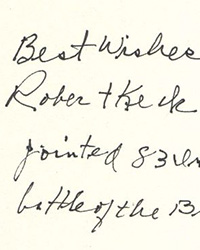 Best Wishes
Robert Keck
jointed 83
battle of the B